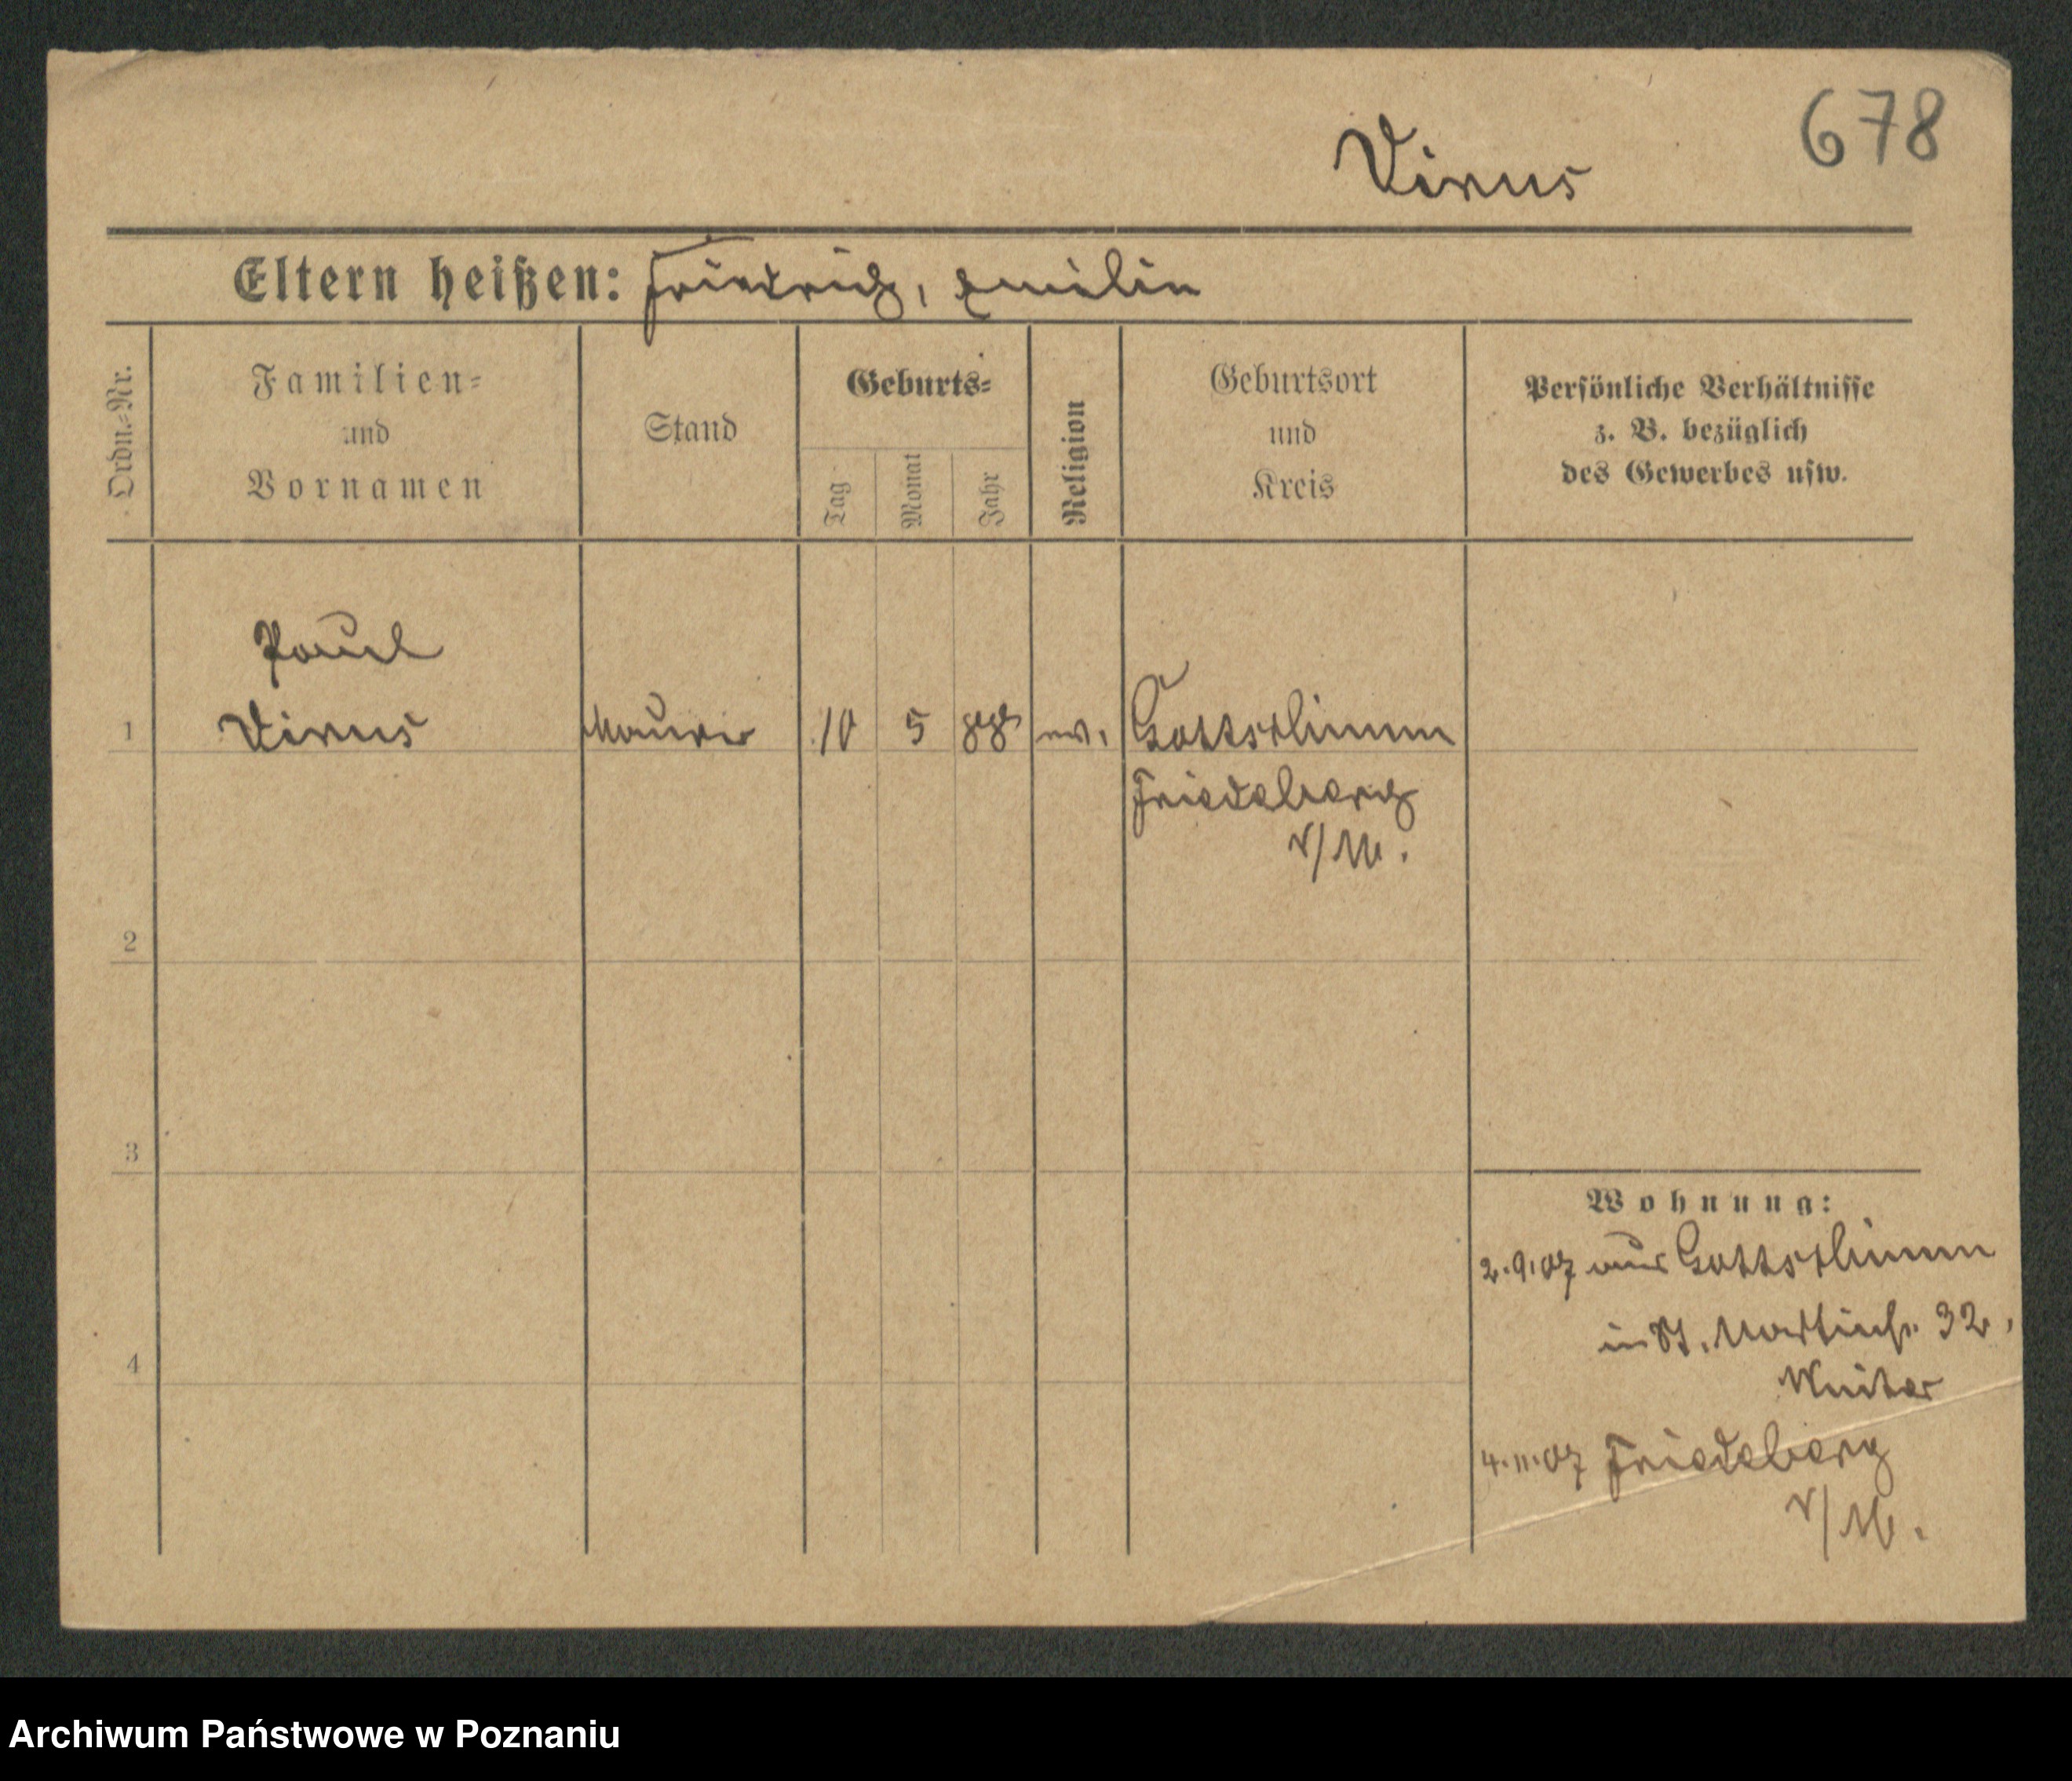 678
Virus
Eltern heißen: Friedrich, Emilie
Ordn.=Nr.
Familien=
und
Vornamen
Stand
Geburts=
Tag
Monat
Jahr
Religion
Geburtsort
und
Kreis
Persönliche Verhältnisse
z. B. bezüglich
des Gewerbes usw.
Paul
1 Virus Maurer 10 5 ev. Gottschimm
Friedeberg
N/M.
2
3
Wohnung:
2.9.07 aus Gottschimm
in St. Martinstr. 32,
4
4.11.07 Friedeberg
N/M.
Archiwum Państwowe w Poznaniu